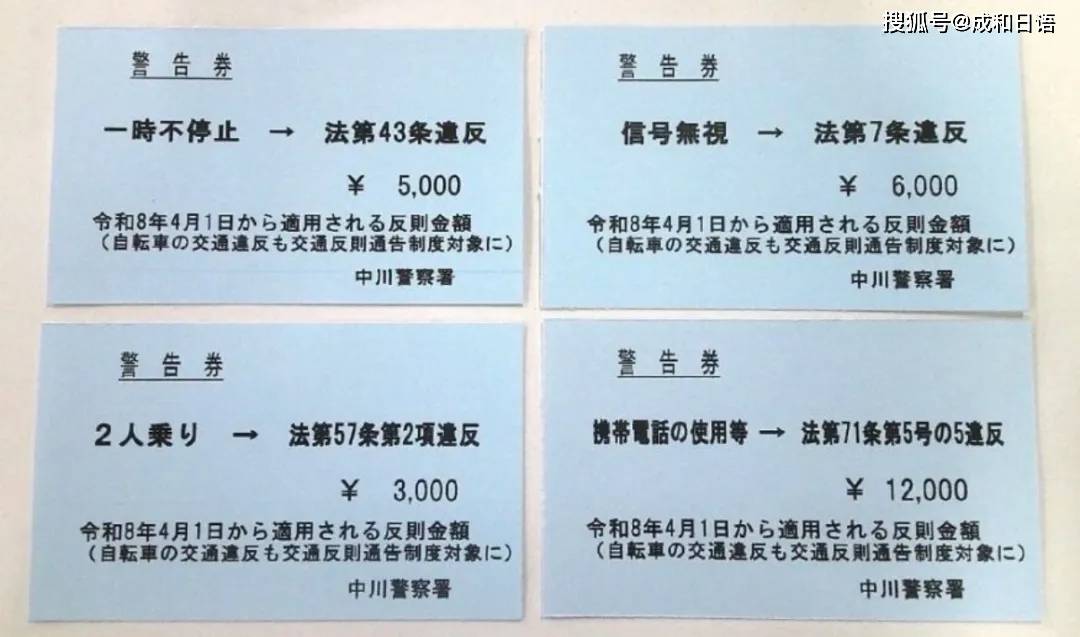 搜狐号@成和日语
警告券
一時不停止 → 法第43条違反
¥ 5,000
令和8年4月1日から適用される反則金額
（自転車の交通違反も交通反則通告制度対象に）
中川警察署
警告券
信号無視 → 法第7条違反
¥ 6,000
令和8年4月1日から適用される反則金額
（自転車の交通違反も交通反則通告制度対象に）
中川警察署
警告券
2人乗り → 法第57条第2項違反
¥ 3,000
令和8年4月1日から適用される反則金額
（自転車の交通違反も交通反則通告制度対象に）
中川警察署
警告券
携帯電話の使用等 → 法第71条第5号の5違反
¥ 12,000
令和8年4月1日から適用される反則金額
（自転車の交通違反も交通反則通告制度対象に）
中川警察署